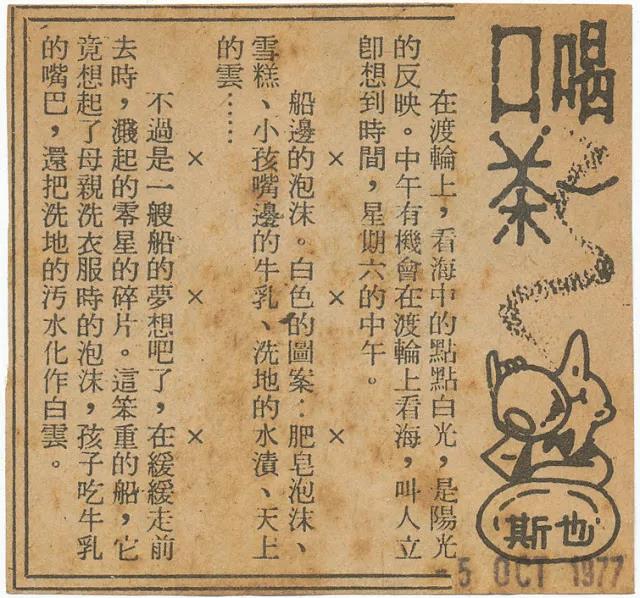 喝口茶
也斯
-5 OCT 1977
在渡輪上，看海中的點點白光，是陽光
的反映。中午有機會在渡輪上看海，叫人立
卽想到時間，星期六的中午。
× × ×
船邊的泡沫。白色的圖案：肥皂泡沫、
雪糕、小孩嘴邊的牛乳、洗地的水漬、天上
的雲……
× × ×
不過是一艘船的夢想吧了，在緩緩走前
去時，濺起的零星的碎片。這笨重的船，它
竟想起了母親洗衣服時的泡沫，孩子吃牛乳
的嘴巴，還把洗地的汚水化作白雲。